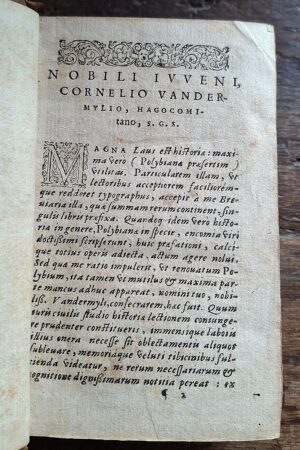 NOBILI IVVENI,
CORNELIO VANDER-
MYLIO, HAGOCOMI-
tano, S. G. S.
MAGNA Laus est historiæ: maxi
ma vero (Polybianæ præsertim)
vtilitas. Particularem illam, vt
lectoribus acceptiorem faciliorém-
que redderet typographus, accepit à me Bre-
uiaria illa, quæ summam rerum continent, sin-
gulis libris præfixa. Quandoq. idem vero histo-
ria in genere, Polybianæ in specie, encomia viri
doctissimi scripserunt, huic præfationi, calci-
que totius operis adiecta, actum agere nolui.
Sed qua me ratio impulerit, vt renouatum Po-
lybium, ita tamen vt mutilus & maxima parte
mancus adhuc appareat, nomini tuo, nobi-
liss. Vandermyli, consecrarem, hæc fuit. Quum
iuris ciuilis studio historiæ lectionem coniunge-
re prudenter constitueris, immensique laboris
illius onera necesse sit oblectamento aliquo
subleuare, memoriæque veluti tibicinibus ful-
cienda videatur, ne rerum necessariarum &
cognitione dignissimarum notitia pereat: ex
¶ 2